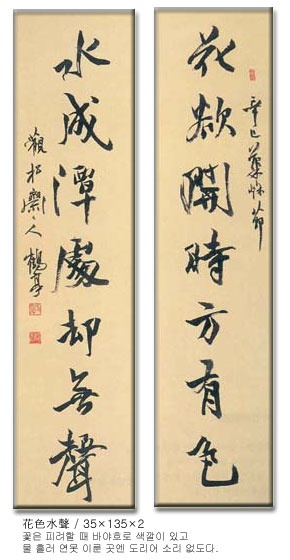 花欲開時方有色
辛巳菊秋節
水成潭處却無聲
觀松齋人 鶴亭
花色水聲 / 35×135×2
꽃은 피려할 때 바야흐로 색깔이 있고
물 흘러 연못 이룬 곳엔 도리어 소리 없도다.